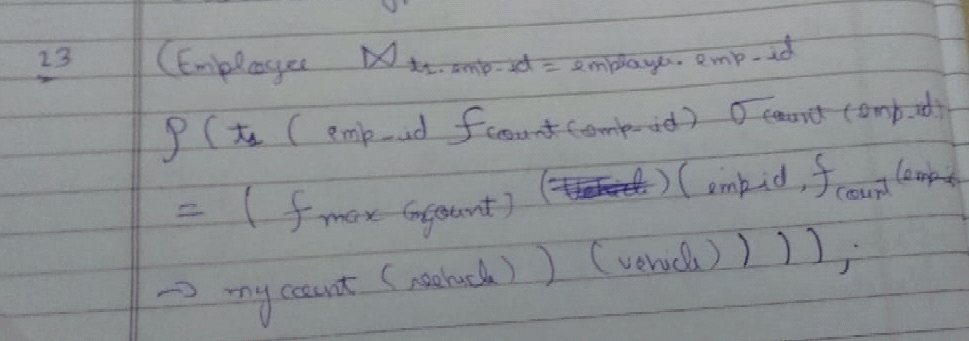 23 (Employee ⋈ ts.emp-id = employee.emp-id
ρ (ts ( emp-id ƒcount(emp-id) σcount (emp-id)
= ( ƒ max mycount) ( ) ( empid, ƒcount (emp-id
→ mycount (vehicle) ) (vehicle) ) ) ) ;